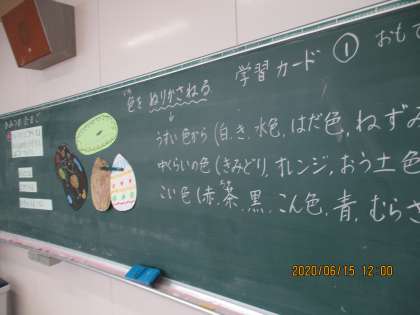 色を ぬりかさねる
学習カード ① おもて
うすい色から (白, き, 水色, はだ色, ねずみ
中くらいの色 (きみどり, オレンジ, おう土色
こい色 (赤, 茶, 黒, こん色, 青, むらさ
2020/06/15 12:00